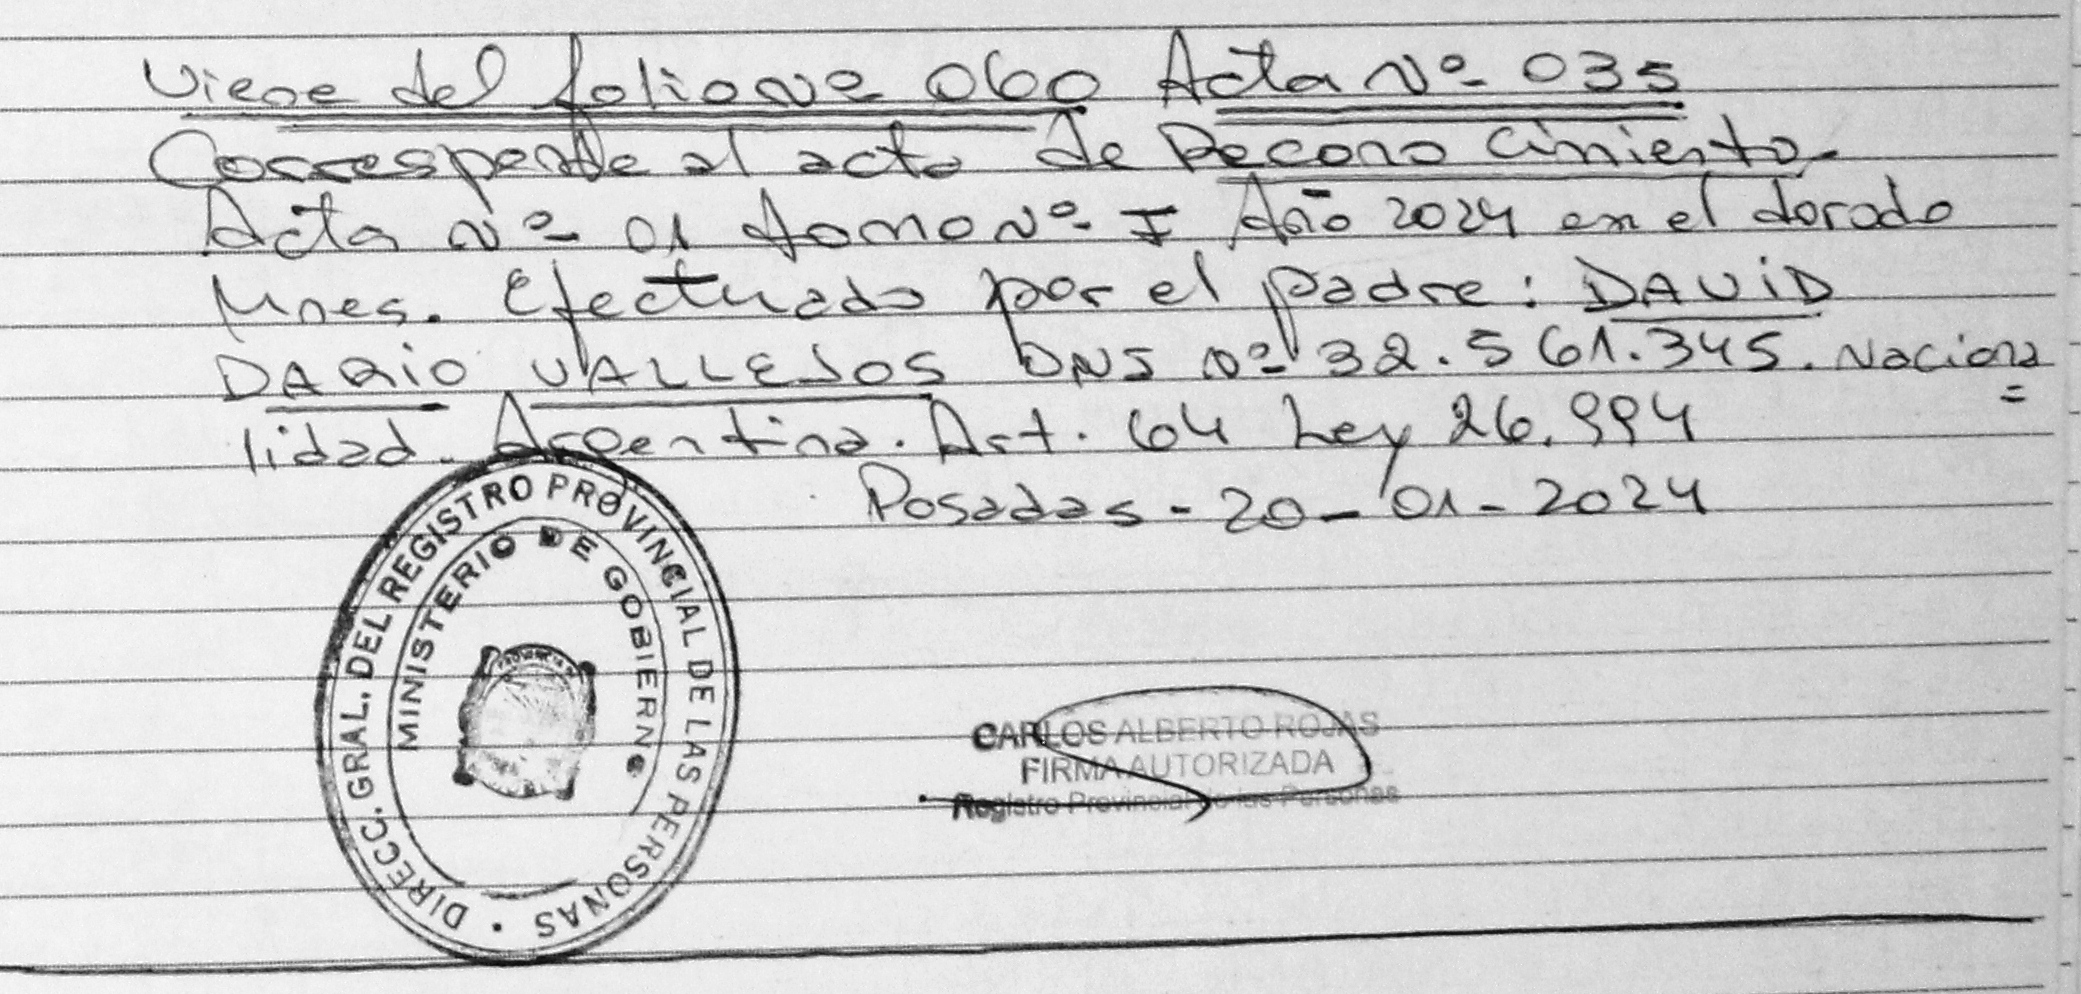 Viene del folio Nº 060 Acta Nº 035
Correspende al acta de Reconocimiento.
Acta Nº 01 tomo Nº I Año 2024 en el dorado
Mnes. Efectuado por el padre: DAViD
DARiO VALLEJOS DNI Nº 32.561.345. Naciona=
lidad. Argentina. Art. 64 Ley 26.994
Posadas - 20 - 01 - 2024
DIRECC. GRAL. DEL REGISTRO PROVINCIAL DE LAS PERSONAS
MINISTERIO DE GOBIERNO
CARLOS ALBERTO ROJAS
FIRMA AUTORIZADA
Registro Provincial de las Personas